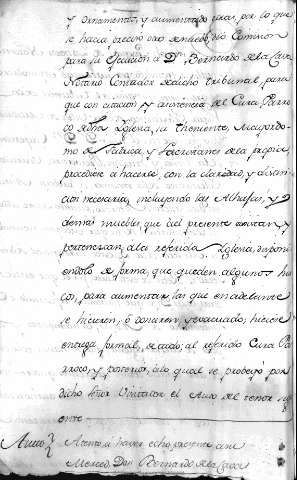 y ornamentos, y aumentado para, por lo que
se hacia preciso
para la Execucion, a Dn. Bernardo de la Cava
Notario Contador de dicho tribunal, para
que con citacion, y asistencia del Cura Parro
co de dha Yglesia, su Theniente, Mayordo
mo de Fabrica, y Sacristanes de la propia,
procediese à hacerle, con la claridad, y distin
cion necesaria, incluyendo las Alhajas, y
demas muebles que al presente existan, y
pertenezcan, à la referida Yglesia, disponi
endolo de forma, que queden algunos hue
cos, para aumentar las que en adelante
se hicieren, ò donaren, y evacuado, hiciese
entrega formal, de todo, al referido Cura Pa
rroco, y posterior, à lo qual se proveyò por
dicho Señor Visitador el Auto del tenor sigu
iente
Auto
Atento a haver echo presente ami
Merced, Don Bernardo de la Cava